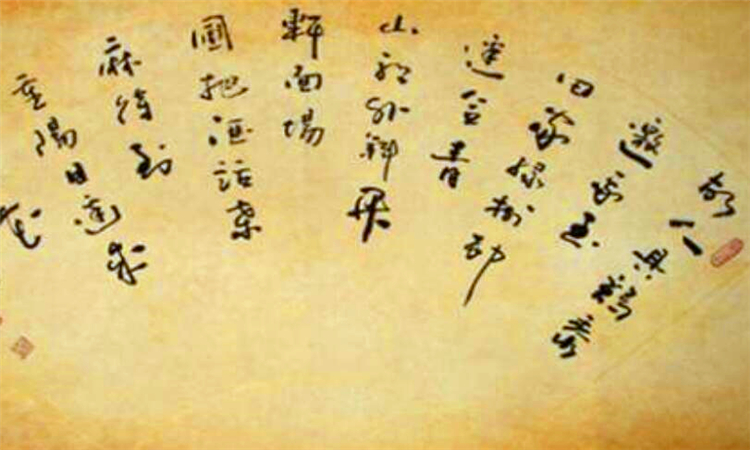 故人具鷄黍
邀我至
田家綠樹邨
邊合青
山郭外斜開
軒面場
圃把酒話桑
麻待到
重陽日還來
花